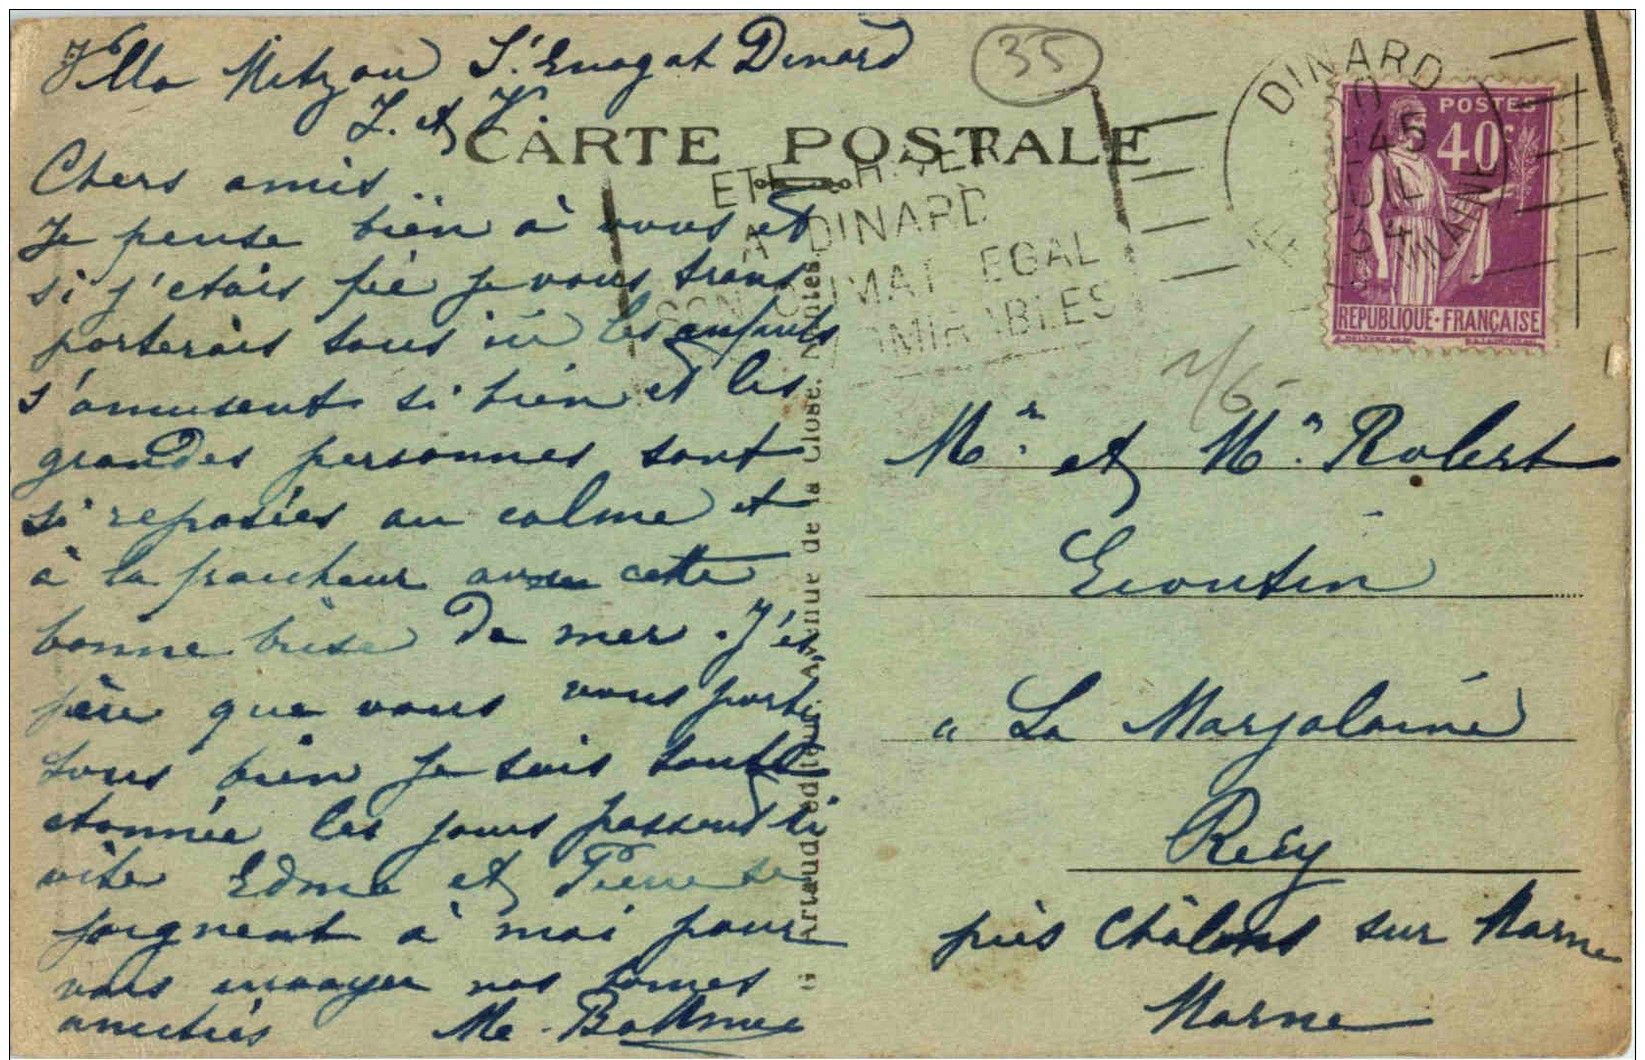 Villa Mitzou St. Enogat Dinard
I. et V.
35
CARTE POSTALE
Chers amis..
Je pense bien à vous et
si j'etais fée je vous trans
porterais tous ici les enfants
s'amusent si bien et les
grandes personnes sont
si reposées au calme et
à la fraicheur avec cette
bonne brise de mer. J'es,
père que vous vous portez
tous bien je suis toute
etonnée les jours passent si
vite Edme et Pierre se
joignent à moi pour
vous envoyer nos bonnes
amitiés Me
ETE HIVER
A DINARD
SON CLIMAT EGAL
ADMIRABLES
Artaud éditeur, Avenue de la Close, Nantes
DINARD
45
JUIL
34
ILLE VILAINE
POSTES
40c
REPUBLIQUE-FRANÇAISE
Mr. et Me. Robert
Ecoutin
" La Marjolaine
Recy
près Châlons sur Marne
Marne